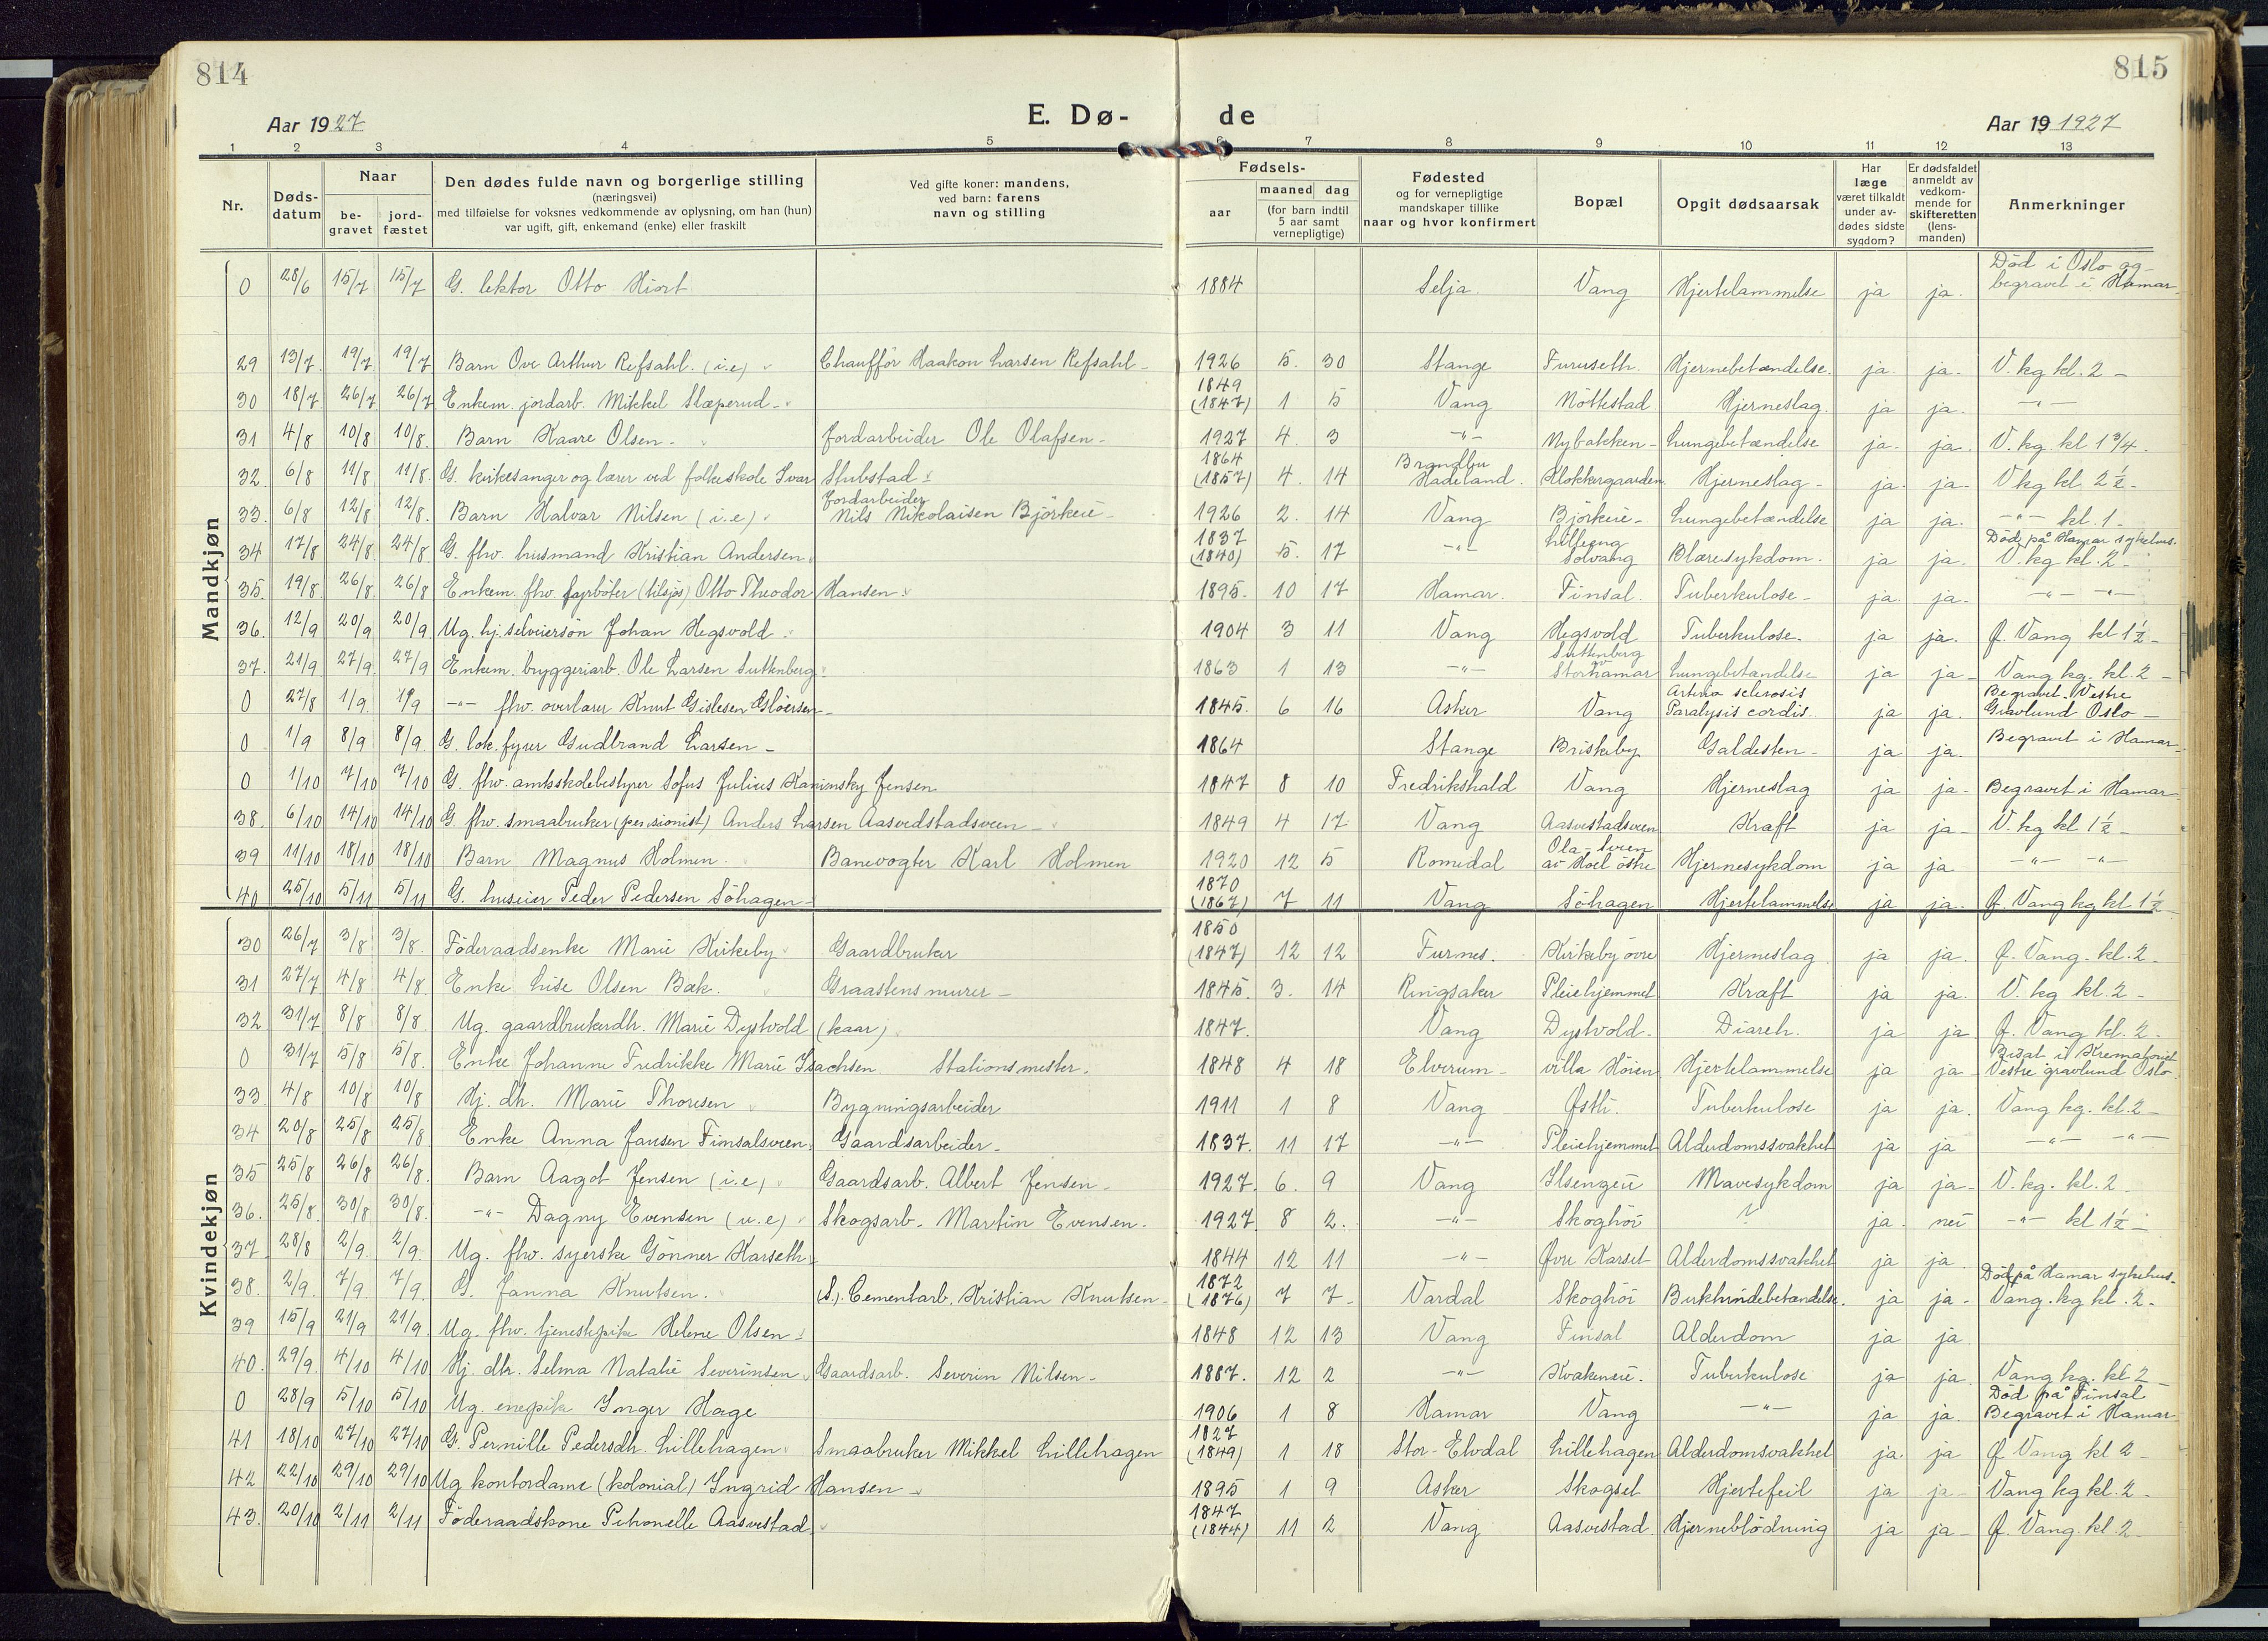 814
815
Aar 1927
E. Dø-
de
Aar 19 1927
1 2 3 4 5 6 7 8 9 10 11 12 13
Nr.
Døds-
datum
Naar
be-
gravet
jord-
fæstet
Den dødes fulde navn og borgerlige stilling
(næringsvei)
med tilføielse for voksnes vedkommende av oplysning, om han (hun)
var ugift, gift, enkemand (enke) eller fraskilt
Ved gifte koner: mandens,
ved barn: farens
navn og stilling
Fødsels-
aar
maaned dag
(for barn indtil
5 aar samt
vernepligtige)
Fødested
og for vernepligtige
mandskaper tillike
naar og hvor konfirmert
Bopæl
Opgit dødsaarsak
Har
læge
været tilkaldt
under av-
dødes sidste
sygdom?
Er dødsfaldet
anmeldt av
vedkom-
mende for
skifteretten
(lens-
manden)
Anmerkninger
Mandkjøn
0 28/6 15/7 15/7 G. lektor Otto Hiort 1884 Selja. Vang Hjertelammelse ja ja. Död i Oslo og begravet i Hamar.
29 13/7 19/7 19/7 Barn Ove Arthur Refsahl. (i.e) Chaufför Haakon Larsen Refsahl - 1926 5. 30 Stange Furuseth. Hjernebetændelse. ja ja. V. kg kl. 2 -
30 18/7 26/7 26/7 Enkem. jordarb. Mikkel Slæperud - 1849 (1847) 1 5 Vang Nöttestad Hjerneslag. ja ja. -"-
31 4/8 10/8 10/8. Barn Kaare Olsen - Jordarbeider Ole Olafsen - 1927 4. 3 -"- Nybakken - Lungebetændelse ja. ja. V. kg. kl 1 3/4.
32. 6/8 11/8 11/8. G. kirkesanger og lærer ved folkeskole Ivar Stubstad - 1864 (1857) 4. 14 Brandbu Hadeland. Klokkergaarden. Hjerneslag - ja. ja. V kg kl. 2 1/2 -
33. 6/8 12/8 12/8. Barn Halvar Nilsen (i.e) Jordarbeider Nils Nikolaisen Björkeie - 1926 2. 14 Vang Björkeie - Lungebetændelse ja ja. -"- kl. 1 -
34 17/8 24/8 24/8 G. fhv. husmand Kristian Andersen 1837 (1840) 5. 17 -"- Lilleeng Solvang Blæresykdom. ja ja. Död på Hamar sykehus. V. kg kl. 2 -
35. 19/8 26/8 26/8 Enkem. fhv. fyrböter (tilsjös) Otto Theodor Hansen. 1895. 10 17 Hamar. Finsal. Tuberkulose - ja. ja. -"- -"-
36. 12/9 20/9 20/9. Ug. hj. selveiersön Johan Hegsvold. 1904 3 11 Vang Hegsvold Tuberkulose. ja ja. Ø. Vang kl 1 1/2 -
37. 21/9 27/9. 27/9 Enkem. bryggeriarb. Ole Larsen Suttenberg 1863 1 13 -"- Suttenberg Storhamar Lungebetændelse ja ja - Vang kg. kl. 2 -
0 27/8 1/9. 1/9 -"- fhv. overlærer Knut Gislesen Glöersen - 1845. 6 16 Asker Vang Arterio sclerosis Paralysis cordis. ja ja. Begravet. Vestre Gravlund Oslo -
0 1/9 8/9 8/9. G. lok. fyrer Gudbrand Larsen - 1864 Stange Briskeby Galdesten - ja ja. Begravet i Hamar -
0 1/10 7/10 7/10 G. fhv. amtskolebestyrer Sofus Julius Kaminsky Jensen 1847 8 10 Fredrikshald Vang Hjerneslag ja ja. Begravet i Hamar
38. 6/10 14/10 14/10 G. fhv. smaabruker (pensionist) Anders Larsen Aasvedstadsveen - 1849 4 17 Vang Aasvestadsveen Kræft ja ja - V. kg kl 1 1/2 -
39 11/10 18/10 18/10 Barn Magnus Holmen. Banevogter Karl Holmen 1920 12 5 Romedal av Hoel östre Hjernesykdom ja ja -"- -"-
40 25/10 5/11 5/11 G. huseier Peder Pedersen Söhagen - 1870 (1867) 7 11 Vang Söhagen Hjertelammelse ja ja. Ø. Vang kg kl 1 1/2 -
Kvindekjøn
30 26/7 3/8 3/8. Föderaadsenke Marie Kirkeby Gaardbruker 1850 (1847) 12 12 Furnes. Kirkeby övre Hjerneslag ja ja. Ø. Vang. kl. 2 -
31 27/7 4/8 4/8 Enke Lise Olsen Bæk. Graastensmurer - 1845. 3. 14 Ringsaker Pleiehjemmet Kræft ja ja. V. kg kl. 2 -
32 31/7 8/8 8/8 Ug. gaardbrukerdh. Marie Dystvold (kaar) 1847. Vang Dystvold - Diareh. ja ja Ø. Vang kl. 2.
0 31/7 5/8 5/8. Enke Johanne Fredrikke Marie Isachsen. Stationsmester. 1848 4 18 Elverum - villa Höien Hjertelammelse ja ja Bisat i Krematoriet Vestre gravlund Oslo.
33 4/8 10/8 10/8 Hj. dh. Marie Thoresen Bygningsarbeider 1911 1 8 Vang Østli. Tuberkulose ja ja. Vang kg. kl. 2 -
34 20/8 25/8 25/8 Enke Anna Jansen Finsalsveen. Gaardsarbeider - 1837. 11 17 -"- Pleiehjemmet Alderdomssvakhet ja ja -"- -"-
35 25/8 26/8 26/8. Barn Aagot Jensen (i.e) Gaardsarb. Albert Jensen - 1927. 6. 9 Vang Ilsengeie Mavesykdom ja ja - V. kg. kl. 2 -
36. 25/8. 30/8 30/8. -"- Dagny Evensen (u.e) Skogsarb. Martin Evensen. 1927 8 2. -"- Skoghöi ? ja. nei -"- kl 1 1/2 -
37 28/8 2/9 2/9. Ug. fhv. syerske Gönner Karseth 1844 12 11 -"- Övre Karset Alderdomssvakhet ja ja.
38. 2/9 7/9 7/9. G. Janna Knutsen. (S.) Cementarb. Kristian Knutsen - 1872 (1876) 7 7 - Vardal Skoghöi Bukhindebetændelse. ja ja - Död på Hamar sykehus. Vang. kg kl. 2 -
39 15/9 21/9 21/9 Ug. fhv. tjenestepike Helene Olsen - 1848 12 13 Vang Finsal Alderdom ja ja
40. 29/9. 4/10 4/10 Hj. dtr. Selma Natalie Severinsen Gaardsarb. Severin Nilsen - 1887. 12 2 -"- Kvakeneie. Tuberkulose ja ja. Vang kg. kl 2 -
0 28/9 5/10 5/10 Ug. enepike Inger Hage 1906 1 8 Hamar Vang -"- ja ja. Död på Finsal Begravet i Hamar
41 18/10 27/10 27/10 G. Pernille Pedersdh. Lillehagen Smaabruker Mikkel Lillehagen 1827 (1849) 1 18 Stor-Elvdal Lillehagen Alderdomsvakhet ja. ja Ø Vang kl 2 -
42 22/10 29/10 29/10 Ug kontordame (kolonial) Ingrid Hansen - 1895 1 9 Asker Skogset Hjertefeil ja ja - Vang kg kl. 2 -
43. 20/10 2/11 2/11 Föderaadskone Petronelle Aasvestad 1847 (1844) 11 2 Vang Aasvestad Hjerneblödning ja ja - Ø. Vang. kl. 2 -